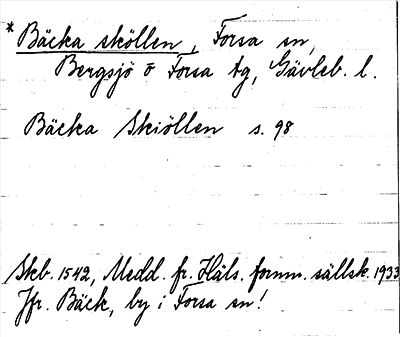 * Bäcka sköllen, Forsa sn,
Bergsjö o Forsa tg, Gävleb. l.
Bäcka Skiöllen s. 98
Skb. 1542, Medd. fr. Häls. fornm. sällsk. 1933
Jfr. Bäck, by i Forsa sn!